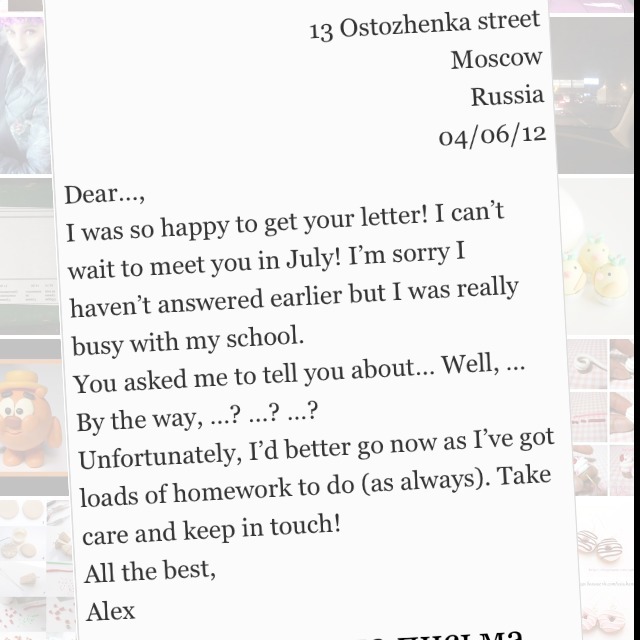 13 Ostozhenka street
Moscow
Russia
04/06/12
Dear...,
I was so happy to get your letter! I can't
wait to meet you in July! I'm sorry I
haven't answered earlier but I was really
busy with my school.
You asked me to tell you about... Well, ...
By the way, ...? ...? ...?
Unfortunately, I'd better go now as I've got
loads of homework to do (as always). Take
care and keep in touch!
All the best,
Alex
письма